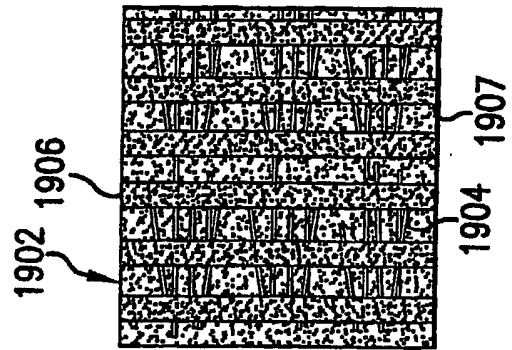 1902
1906
1904
1907